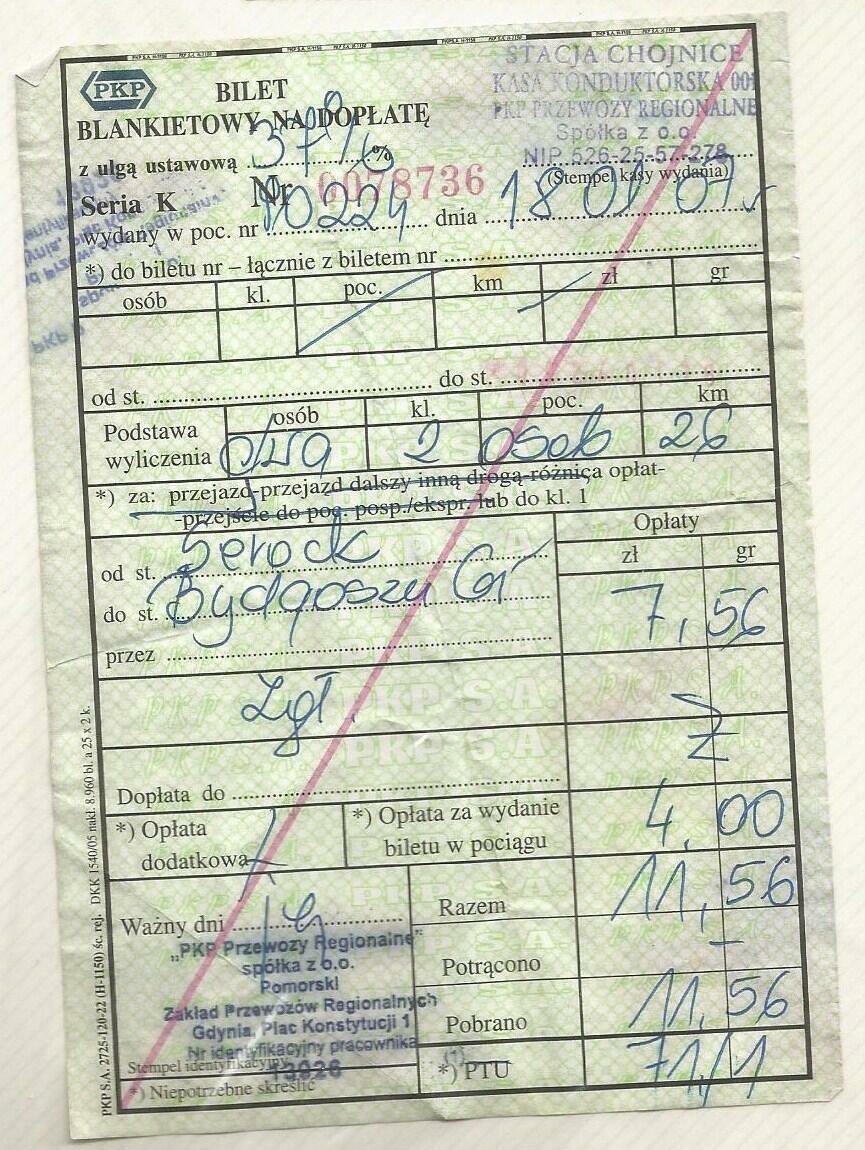 PKP
BILET
BLANKIETOWY NA DOPŁATĘ
STACJA CHOJNICE
KASA KONDUKTORSKA 001
PKP PRZEWOZY REGIONALNE
Spółka z o.o.
NIP 526-25-57-278
(Stempel kasy wydania)
z ulgą ustawową 37% %
Seria K Nr 0078736
wydany w poc. nr 10224 dnia 18 01 07
*) do biletu nr – łącznie z biletem nr
osób kl. poc. km zł gr
od st. do st.
osób kl. poc. km
Podstawa
wyliczenia 2 osob 26
*) za: przejazd-przejazd dalszy inną drogą-różnica opłat-
-przejście do poc. posp./ekspr. lub do kl. 1
Opłaty
zł gr
od st. Serock
do st. Bydgoszcz Gł
7,56
przez
Zgł.
Dopłata do
*) Opłata
dodatkowa
*) Opłata za wydanie
biletu w pociągu
4,00
Ważny dni
Razem 11,56
Potrącono –
Pobrano 11,56
*) PTU
„PKP Przewozy Regionalne"
spółka z o.o.
Pomorski
Zakład Przewozów Regionalnych
Gdynia, Plac Konstytucji 1
Nr identyfikacyjny pracownika
Stempel identyfikacyjny
13926
*) Niepotrzebne skreślić
PKP S.A. 2725-120-22 (H-1150) śc. rej. DKK 1540/05 nakł. 8.960 bl. a 25 x 2 k.